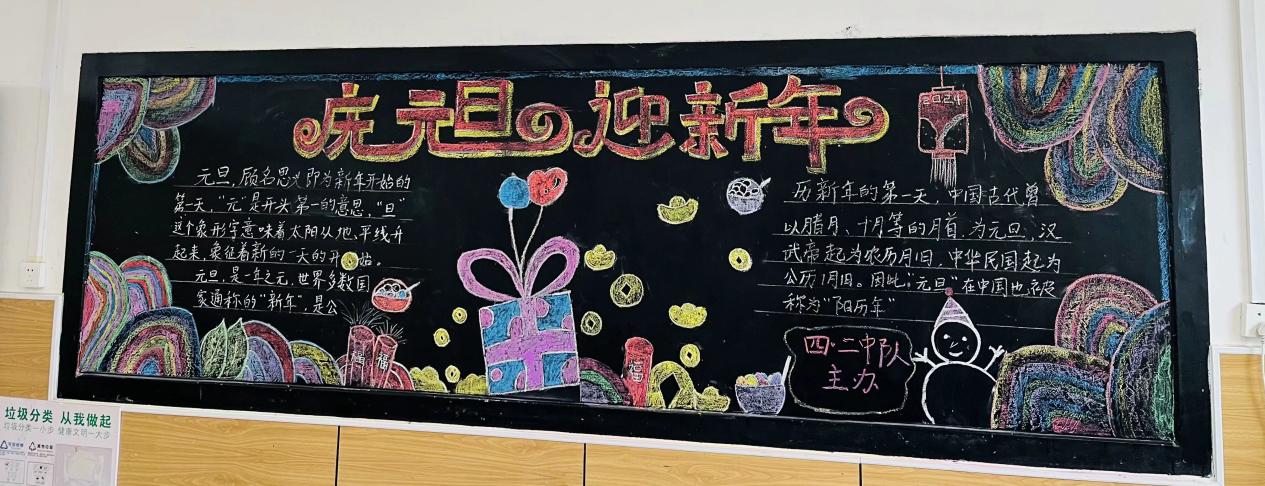 庆元旦 迎新年
2024
元旦，顾名思义即为新年开始的
第一天，"元"是开头第一的意思，"旦"
这个象形字意味着太阳从地平线升
起来，象征着新的一天的开始。
元旦，是一年之元，世界多数国
家通称的"新年"，是公
历新年的第一天；中国古代曾
以腊月、十月等的月首，为元旦，汉
武帝起为农历1月1日，中华民国起为
公历1月1日。因此，"元旦"在中国也被
称为"阳历年"
四·二中队
主办
福
福
垃圾分类 从我做起
垃圾分类一小步 健康文明一大步